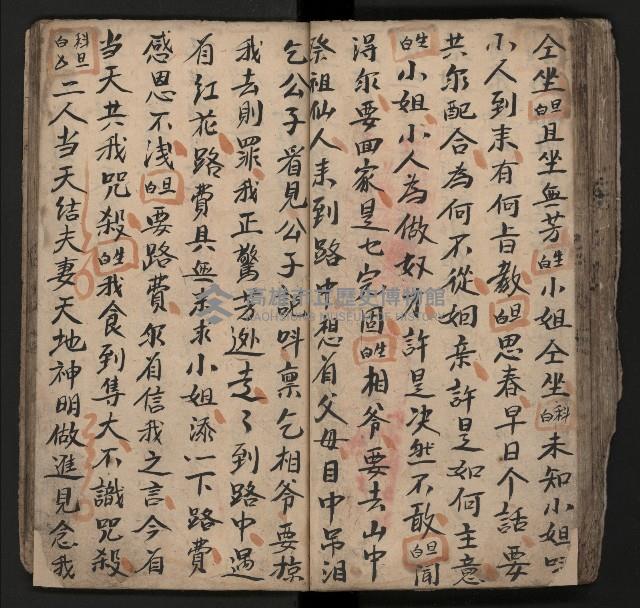 仝坐白旦且坐無芳白生小姐仝坐白科未知小姐叫
小人到來有何旨教白旦思春早日个話要
共尔配合為何不從姻亲許是如何主意
白生小姐小人為做奴才許是决然不敢白旦聞
得尔要回家是乜字固白生相爷要去山中
祭祖仙人來到路中想着父母目中吊泪
乞公子看見公子咆哮稟乞相爷要掠
我去則罪我正驚芳迯走了到路中遇
有紅花路費具無來求小姐添一下路費
感恩不浅白旦要路費尔着信我之言今着
當天共我咒殺白生我食到隻大不識咒殺
白科旦二人当天結夫妻天地神明做進見念我
高雄市立歷史博物館
KAOHSIUNG MUSEUM OF HISTORY